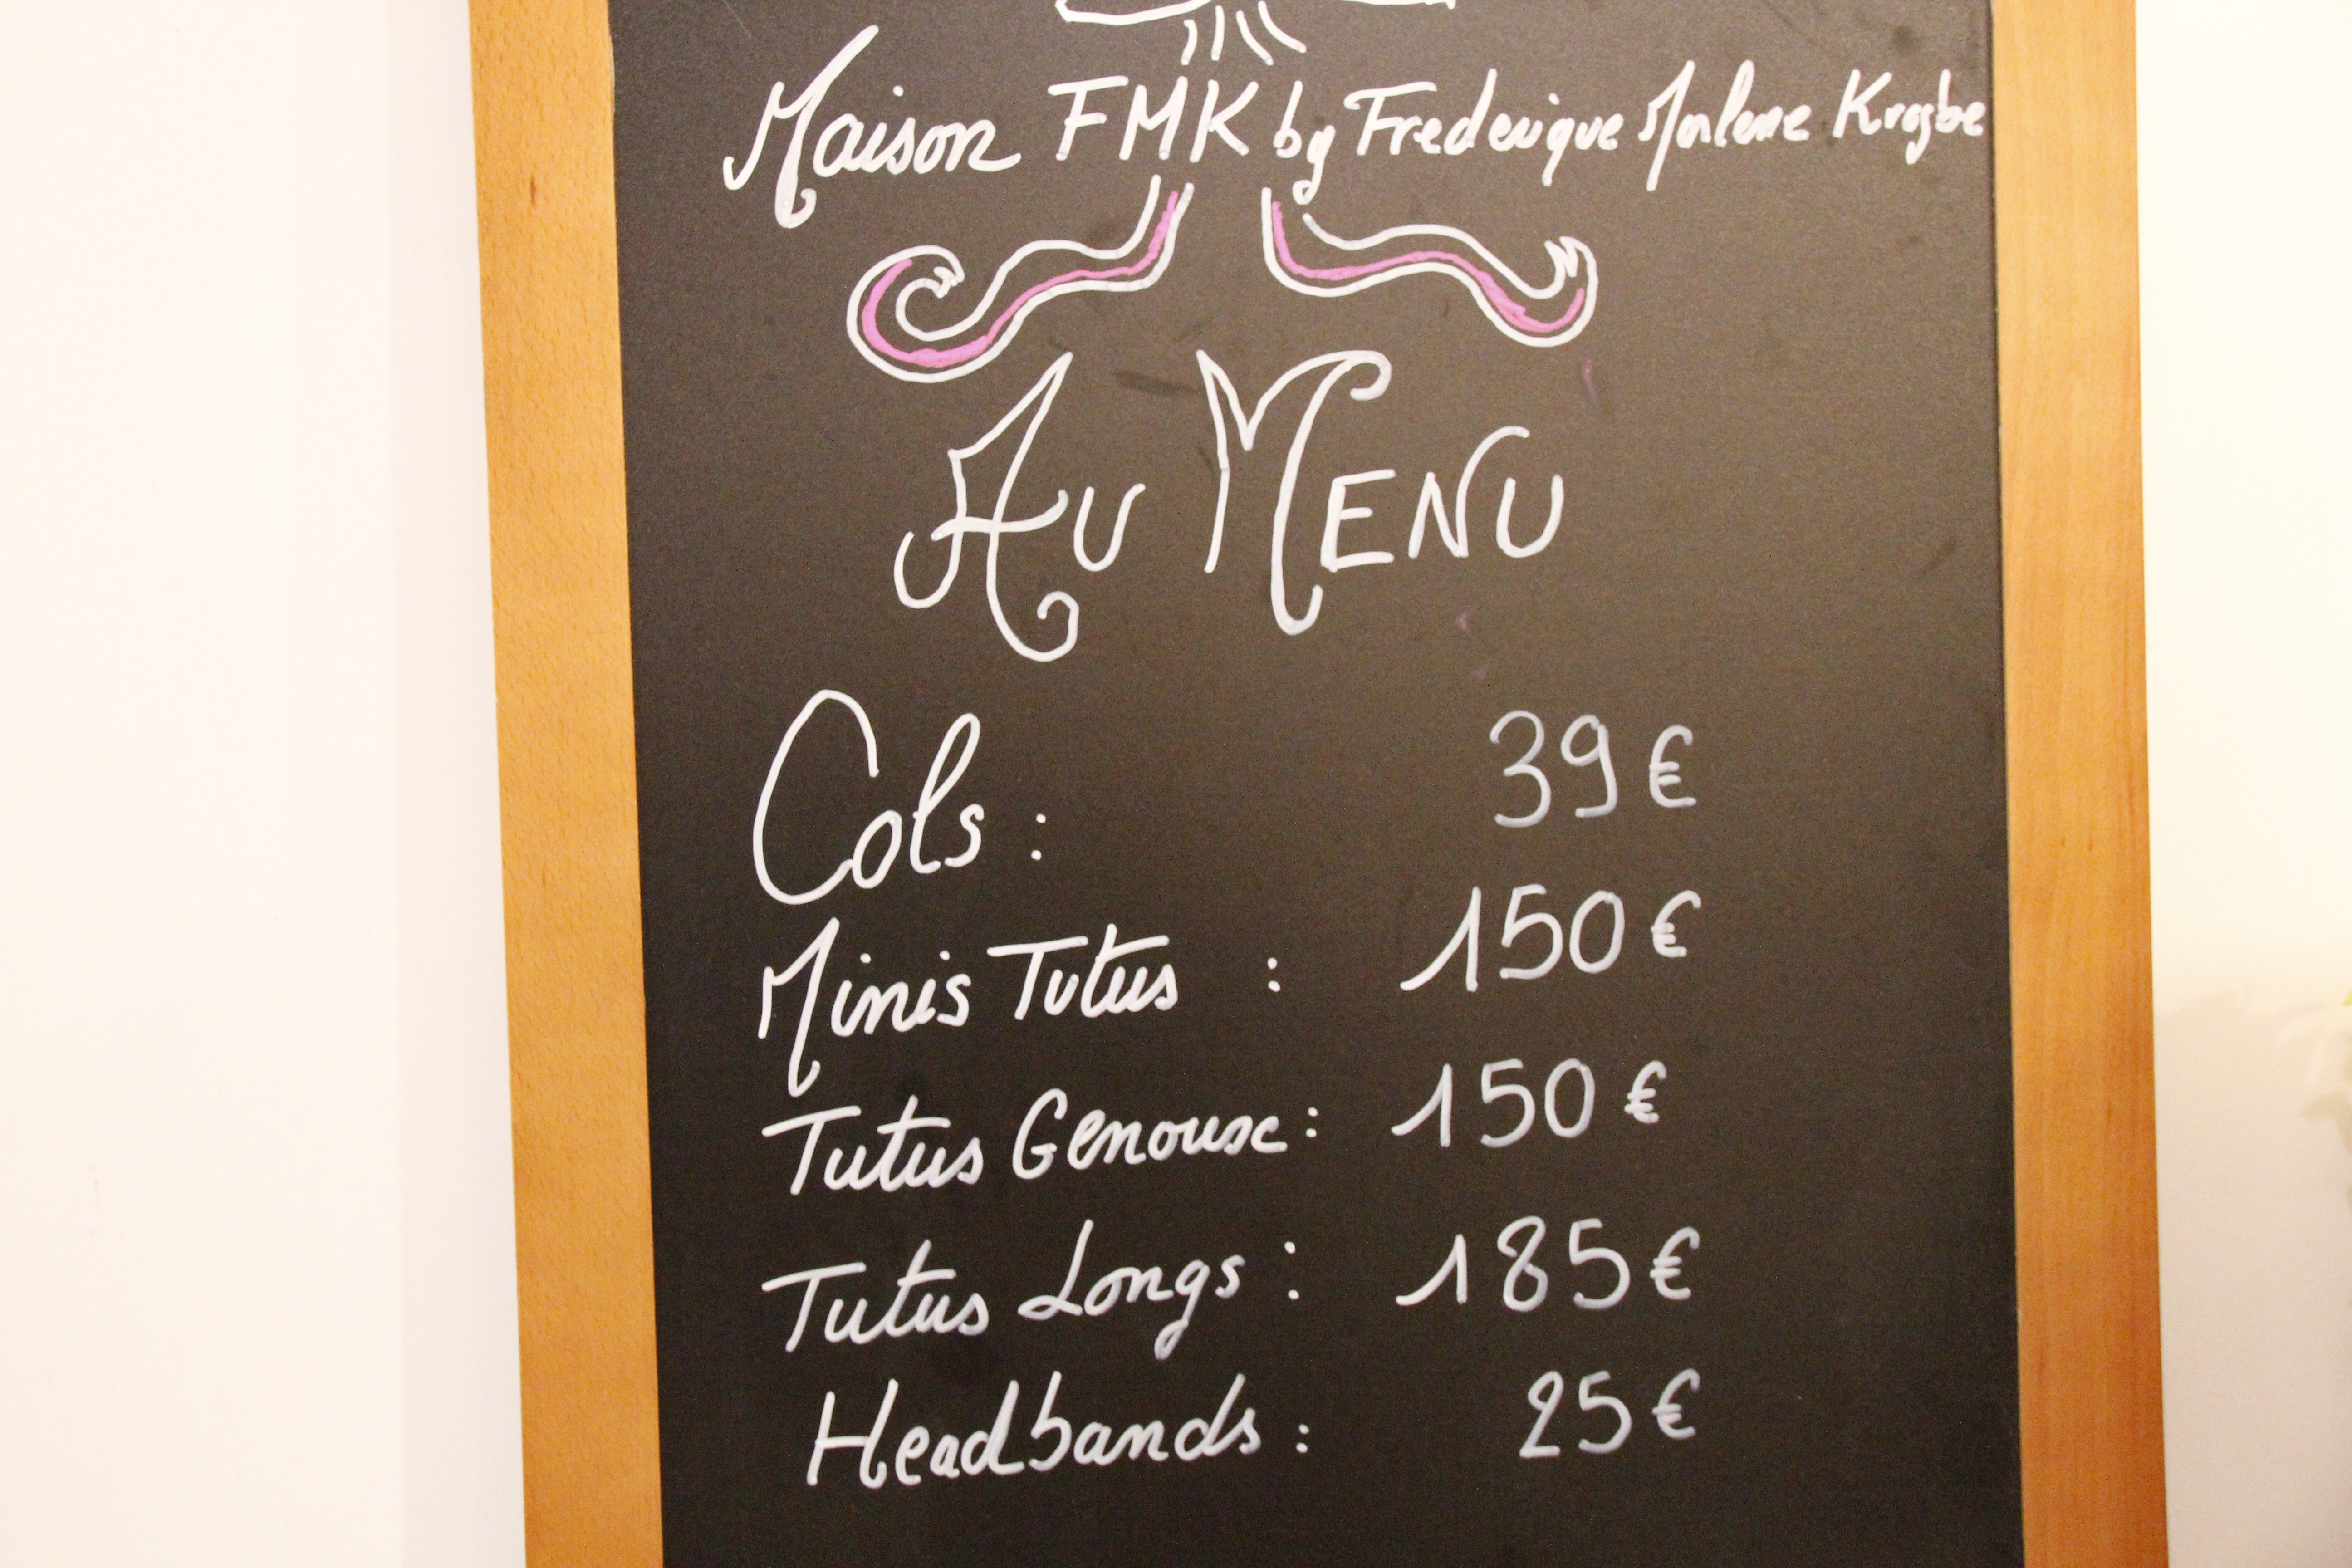 Maison FMK by Frederique Marlene Krogbe
Au Menu
Cols : 39 €
Minis Tutus : 150 €
Tutus Genoux : 150 €
Tutus Longs : 185 €
Headbands : 25 €